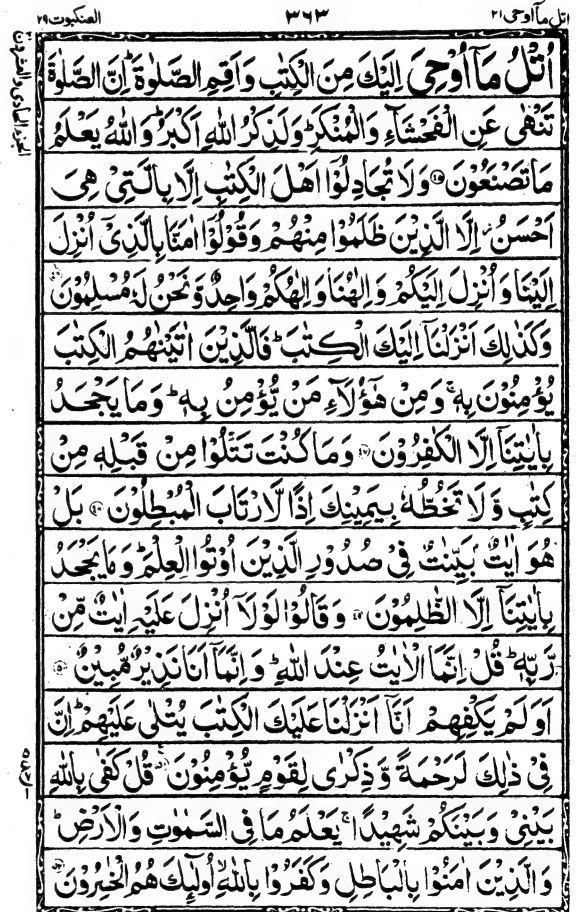 اتل مآ اوحی ٢١ ٣٦٣ العنكبوت ٢٩
اُتْلُ مَآ اُوْحِیَ اِلَیْكَ مِنَ الْكِتٰبِ وَاَقِمِ الصَّلٰوةَ ؕ اِنَّ الصَّلٰوةَ
تَنْهٰی عَنِ الْفَحْشَآءِ وَالْمُنْكَرِ ؕ وَلَذِكْرُ اللّٰهِ اَكْبَرُ ؕ وَاللّٰهُ یَعْلَمُ
مَا تَصْنَعُوْنَ ﴿٤٥﴾ وَلَا تُجَادِلُوْۤا اَهْلَ الْكِتٰبِ اِلَّا بِالَّتِیْ هِیَ
اَحْسَنُ ۖ اِلَّا الَّذِیْنَ ظَلَمُوْا مِنْهُمْ وَقُوْلُوْۤا اٰمَنَّا بِالَّذِیْۤ اُنْزِلَ
اِلَیْنَا وَاُنْزِلَ اِلَیْكُمْ وَاِلٰهُنَا وَاِلٰهُكُمْ وَاحِدٌ وَّنَحْنُ لَهٗ مُسْلِمُوْنَ ﴿٤٦﴾
وَكَذٰلِكَ اَنْزَلْنَاۤ اِلَیْكَ الْكِتٰبَ ؕ فَالَّذِیْنَ اٰتَیْنٰهُمُ الْكِتٰبَ
یُؤْمِنُوْنَ بِهٖ ۚ وَمِنْ هٰۤؤُلَآءِ مَنْ یُّؤْمِنُ بِهٖ ؕ وَمَا یَجْحَدُ
بِاٰیٰتِنَاۤ اِلَّا الْكٰفِرُوْنَ ﴿٤٧﴾ وَمَا كُنْتَ تَتْلُوْا مِنْ قَبْلِهٖ مِنْ
كِتٰبٍ وَّلَا تَخُطُّهٗ بِیَمِیْنِكَ اِذًا لَّارْتَابَ الْمُبْطِلُوْنَ ﴿٤٨﴾ بَلْ
هُوَ اٰیٰتٌۢ بَیِّنٰتٌ فِیْ صُدُوْرِ الَّذِیْنَ اُوْتُوا الْعِلْمَ ؕ وَمَا یَجْحَدُ
بِاٰیٰتِنَاۤ اِلَّا الظّٰلِمُوْنَ ﴿٤٩﴾ وَقَالُوْا لَوْلَاۤ اُنْزِلَ عَلَیْهِ اٰیٰتٌ مِّنْ
رَّبِّهٖ ؕ قُلْ اِنَّمَا الْاٰیٰتُ عِنْدَ اللّٰهِ ؕ وَاِنَّمَاۤ اَنَا نَذِیْرٌ مُّبِیْنٌ ﴿٥٠﴾
اَوَلَمْ یَكْفِهِمْ اَنَّاۤ اَنْزَلْنَا عَلَیْكَ الْكِتٰبَ یُتْلٰی عَلَیْهِمْ ؕ اِنَّ
فِیْ ذٰلِكَ لَرَحْمَةً وَّذِكْرٰی لِقَوْمٍ یُّؤْمِنُوْنَ ﴿٥١﴾ قُلْ كَفٰی بِاللّٰهِ
بَیْنِیْ وَبَیْنَكُمْ شَهِیْدًا ۚ یَعْلَمُ مَا فِی السَّمٰوٰتِ وَالْاَرْضِ ؕ
وَالَّذِیْنَ اٰمَنُوْا بِالْبَاطِلِ وَكَفَرُوْا بِاللّٰهِ ۙ اُولٰٓئِكَ هُمُ الْخٰسِرُوْنَ ﴿٥٢﴾
الجزء الحادی والعشرون